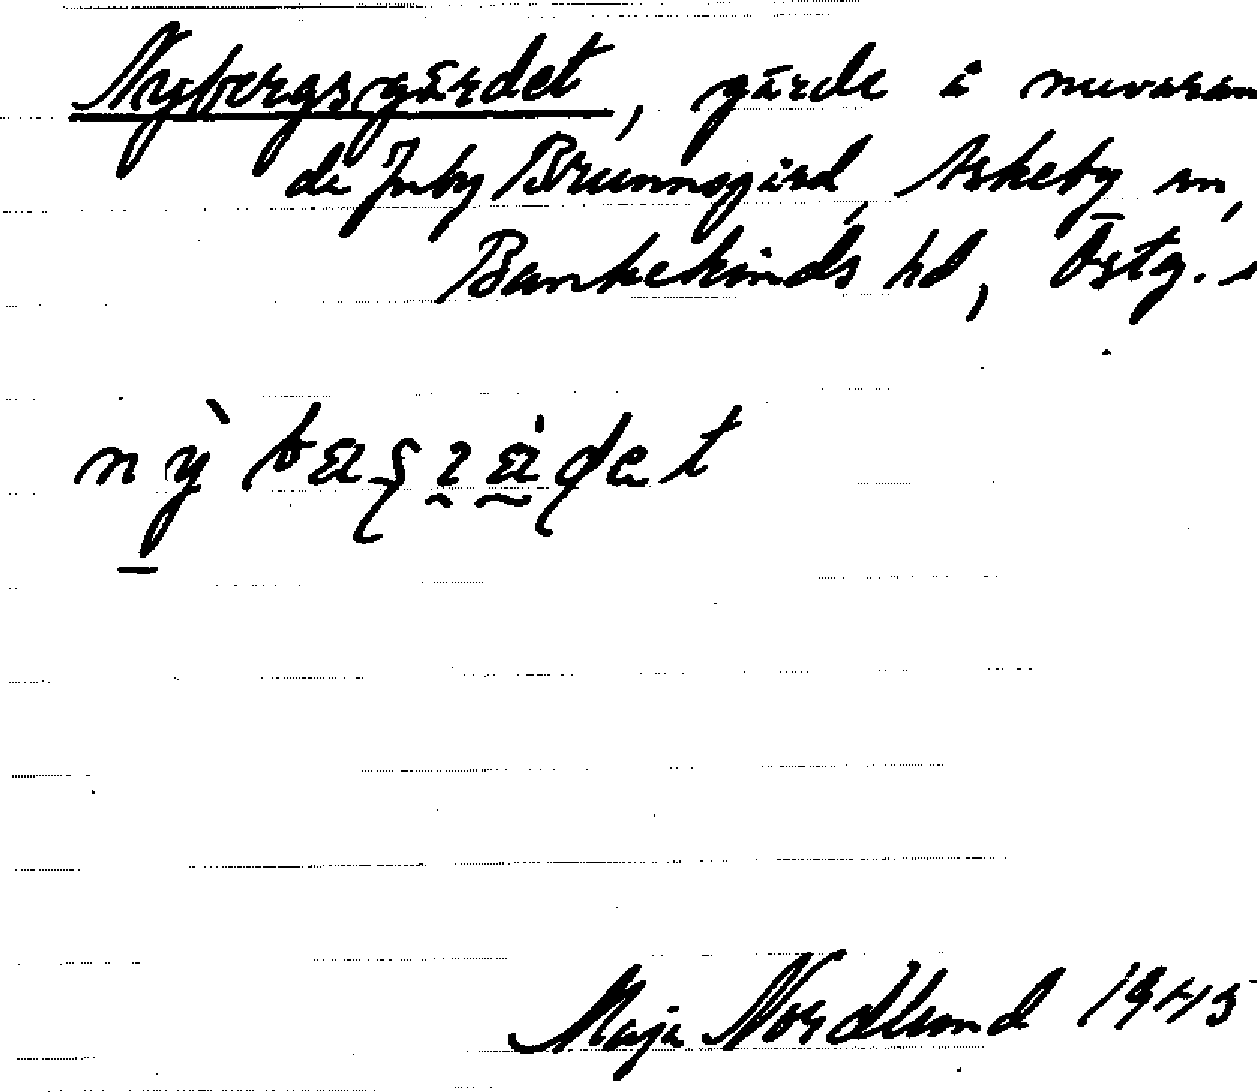 Nybergsgärdet, gärde å nuvaran
de Juby Brunnsgård, Askeby sn,
Bankekinds hd, Östg.
Maja Nordlund 1945